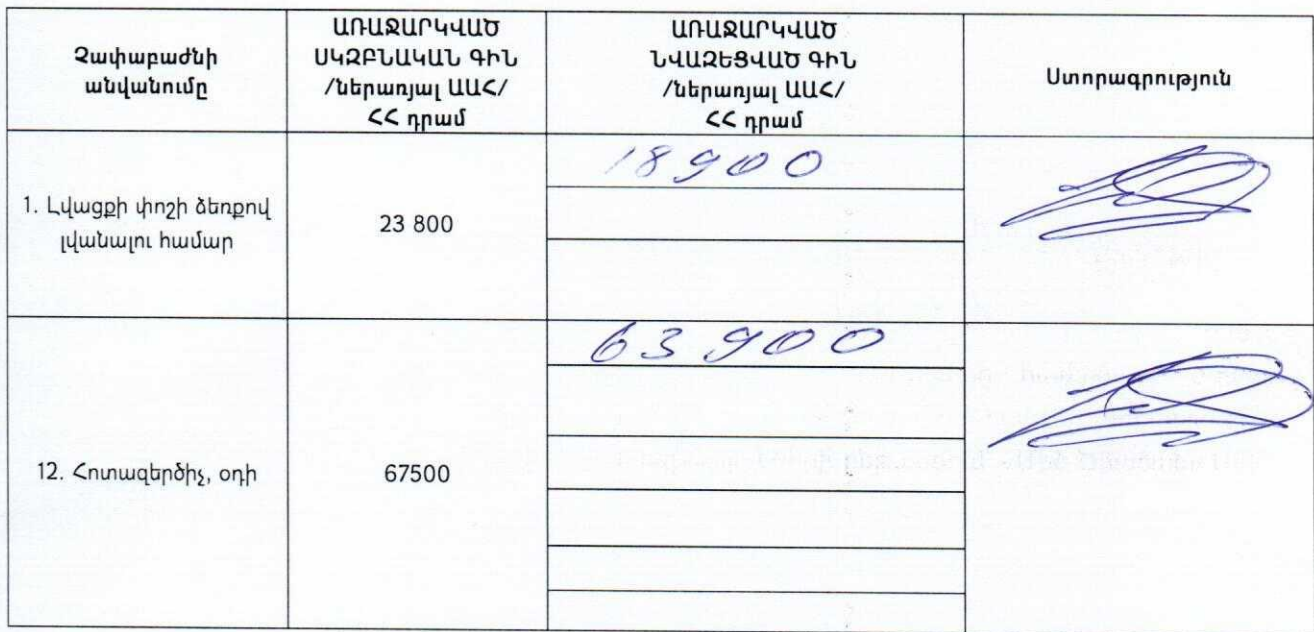 Չափաբաժնի
անվանումը
ԱՌԱՋԱՐԿՎԱԾ
ՍԿԶԲՆԱԿԱՆ ԳԻՆ
/ներառյալ ԱԱՀ/
ՀՀ դրամ
ԱՌԱՋԱՐԿՎԱԾ
ՆՎԱԶԵՑՎԱԾ ԳԻՆ
/ներառյալ ԱԱՀ/
ՀՀ դրամ
Ստորագրություն
1. Լվացքի փոշի ձեռքով
լվանալու համար
23 800
18900
12. Հոտազերծիչ, օդի
67500
63900